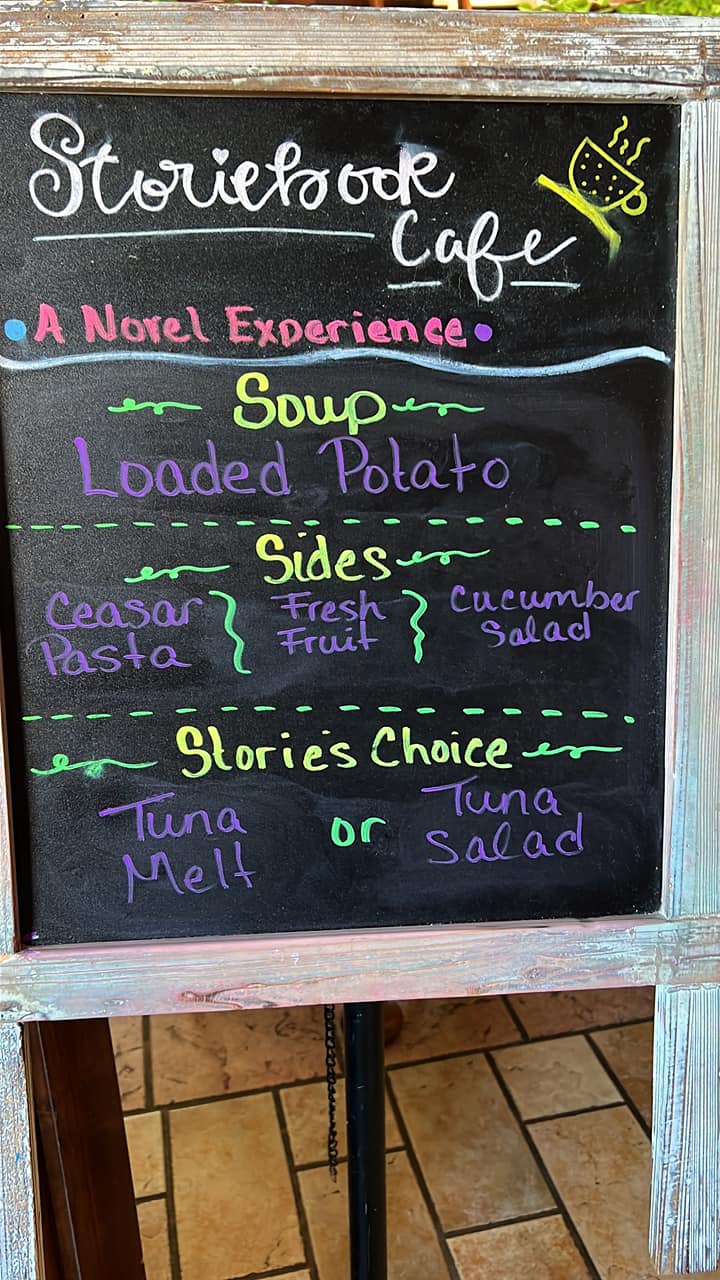 Storiebook
Cafe
A Novel Experience
Soup
Loaded Potato
Sides
Ceasar Pasta
Fresh Fruit
Cucumber Salad
Storie's Choice
Tuna Melt
or
Tuna Salad